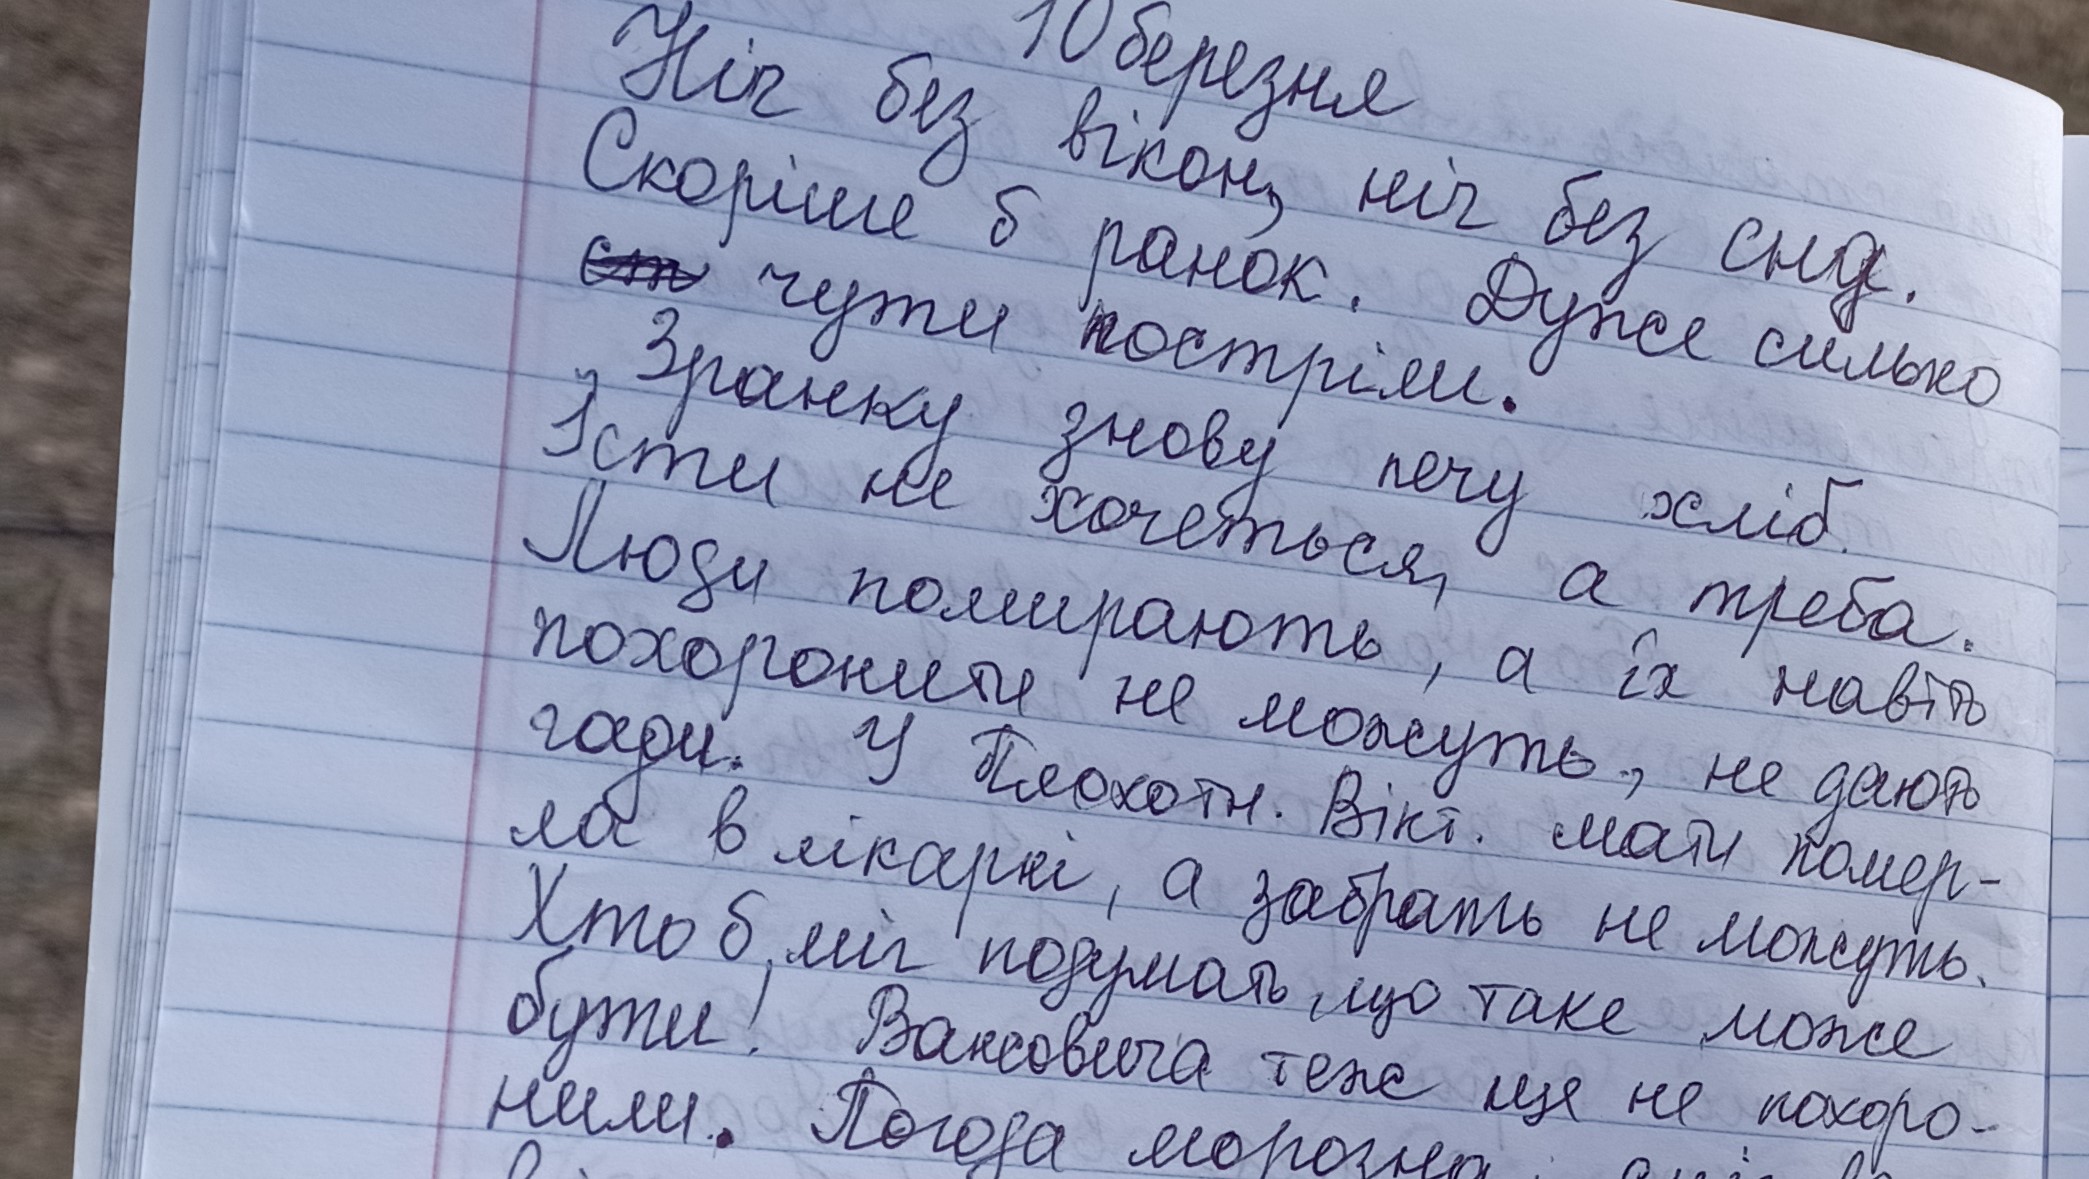 10 березня
Ніч без вікон, ніч без сна.
Скоріше б ранок. Дуже сильно
чути постріли.
Зранку знову печу хліб.
Їсти не хочеться, а треба.
Люди помирають, а їх навіть
похоронити не можуть, не дають
гади. У Плохотн. Вікт. мати помер-
ла в лікарні, а забрать не можуть.
Хто б міг подумать, що таке може
бути! Вансовича теж ще не похоро-
нили. Погода морозна